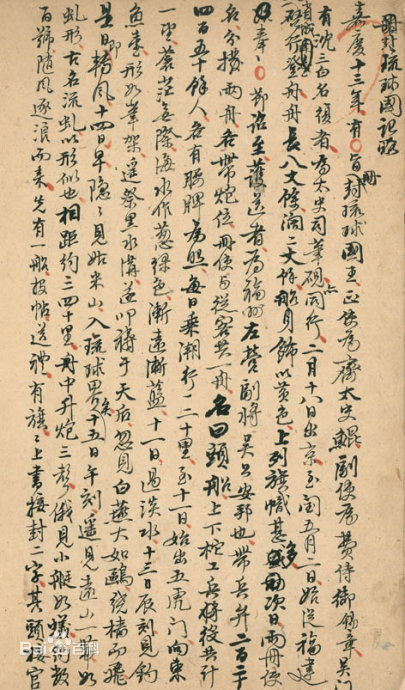 册封琉球國記略
嘉慶十三年有旨册封琉球國王正使為齋太史鯤副使為費侍御錫章吴門
有沈三白名復者為太史司筆硯同行二月十八日出京至閩五月二日始從福建
登舟舟長八丈餘濶二丈餘船身飾以黄色上列旗幟甚多次日兩册使
奉節詔至護送者為福州左營副將吴公安邦也帶兵弁二百
名分撥兩舟各帶炮位册使與從客共一舟名曰頭船上下柁工兵將役共計
四百五十餘人各有腰牌為照每日乘潮行一二十里至十一日始出五虎門向東
一望蒼茫無際海水作葱綠色漸遠漸藍十二日過淡水十三日辰刻見釣
魚臺形如筆架遥祭黑水溝遂叩禱于天后忽見白燕大如鷗繞檣而飛
是日即轉風十四日早隱隱見姑米山入琉球界矣十五日午刻遥見遠山一帶如
虬形古名流虬以形似也相距約三四十里舟中升炮三聲俄見小艇如蟻約數
百號隨風逐浪而來先有一船投帖送禮有旗旗上書接封二字其頭接官
Baidu百科